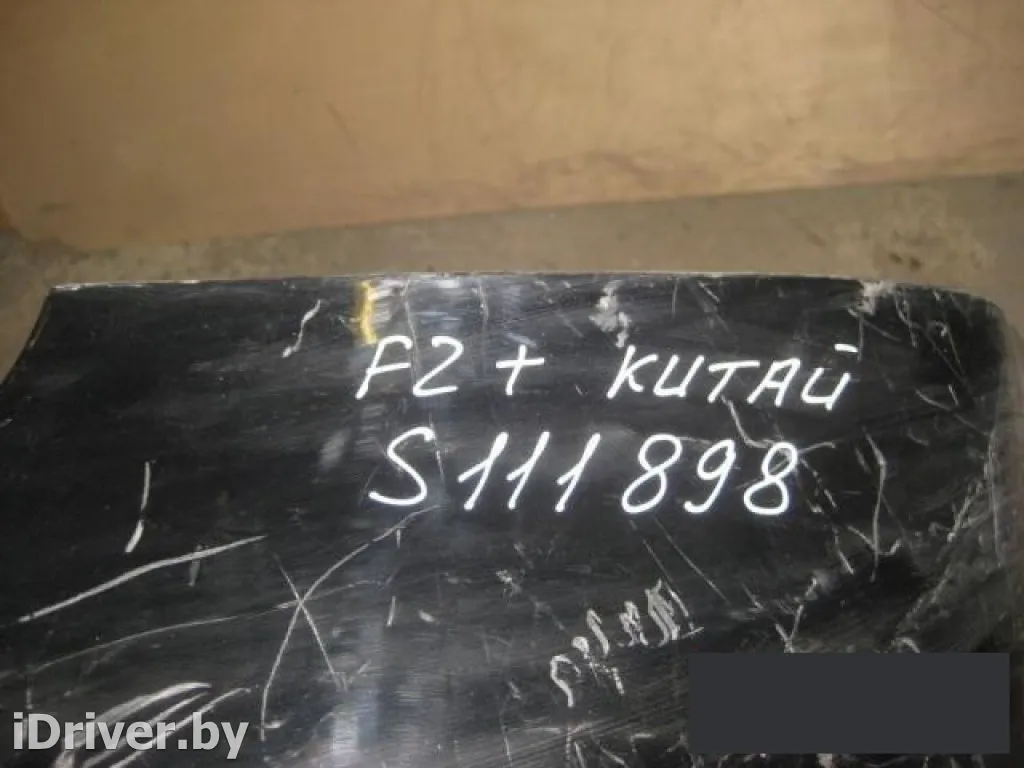 F2 + КИТАЙ
S111898
iDriver.by